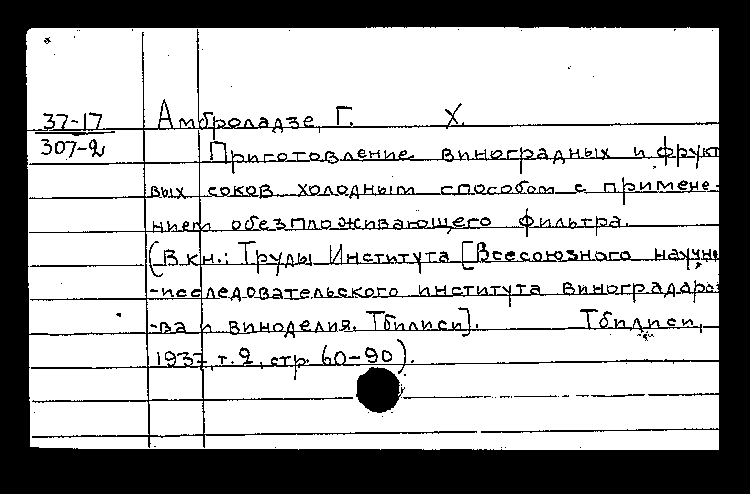 37-17
307-2
Амброладзе, Г. Х.
Приготовление виноградных и фрукт
вых соков холодным способом с примене-
нием обезпложивающего фильтра.
(В кн.: Труды Института [Всесоюзного научно
-исследовательского института виноградарс
-ва и виноделия. Тбилиси]. Тбилиси,
1937, т. 2, стр. 60-90).